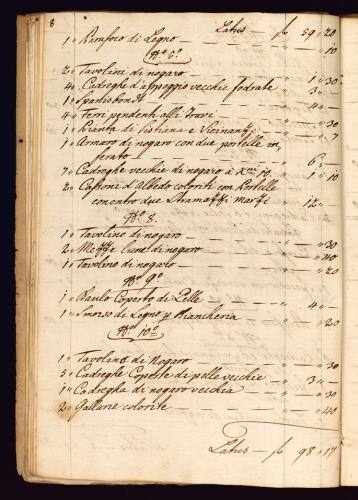 8
Latus — f 59 „ 20
1 „ Paraforo di Legno — „ — „ 10
N.o 6.o
2 „ Tavolini di nogaro — „ 1 „ 30
4 „ Cadreghe d'appoggio vecchie fodrate — „ 3 „ —
1 „ — „ 4 „ —
4 „ Ferri pendenti alli Trave — „ — „ 30
1 „ Pianta di Tistiana e Vicinanze — „ — „ 7
1 „ Armaro di nogaro con due portelle in
ferato — „ 6 „ —
7 „ Cadreghe vecchie di nogaro à 10. — „ 1 „ 10
2 „ Cassoni d'Albedo coloriti con Portelle
con entro due Stramazzi — „ 12 „ —
N.o 8.
1 „ Tavolino di nogaro — „ — „ 30
2 „ Mezze Lune di nogaro — „ — „ 40
1 „ Tavolino di nogaro — „ — „ 20
N.o 9.o
1 „ Baulo Coperto di Pelle — „ 4 „ —
1 „ Smorso di Legno p Biancheria — „ — „ 20
N.o 10.o
1 „ Tavolino di Nogaro — „ — „ 30
5 „ Cadreghe Coperte di pelle vecchie — „ 3 „ —
1 „ Cadregha di nogaro vecchia — „ — „ 30
2 „ colorite — „ — „ 40
Latus — f 98 „ 17